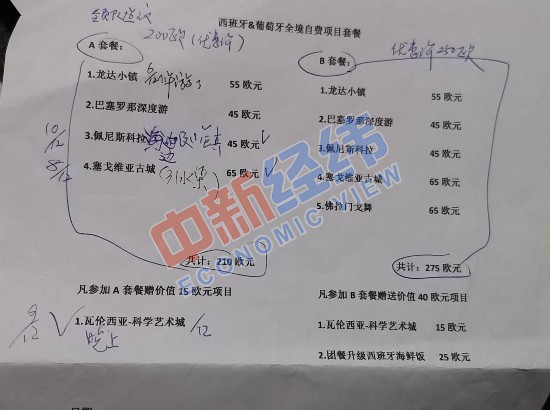 领队送议
200欧(优惠价)
西班牙&葡萄牙全境自费项目套餐
A 套餐:
B 套餐:
优惠价250欧
1.龙达小镇 55 欧元
1.龙达小镇 55 欧元
2.巴塞罗那深度游 45 欧元
2.巴塞罗那深度游 45 欧元
10/12
3.佩尼斯科拉 45 欧元
3.佩尼斯科拉 45 欧元
8/12
4.塞戈维亚古城 65 欧元
(引水渠)
4.塞戈维亚古城 65 欧元
5.佛拉门戈舞 65 欧元
中新经纬
ECONOMIC VIEW
共计:210 欧元
共计:275 欧元
凡参加 A 套餐赠价值 15 欧元项目
凡参加 B 套餐赠送价值 40 欧元项目
9/12
1.瓦伦西亚-科学艺术城 /12
晚上
1.瓦伦西亚-科学艺术城 15 欧元
2.团餐升级西班牙海鲜饭 25 欧元